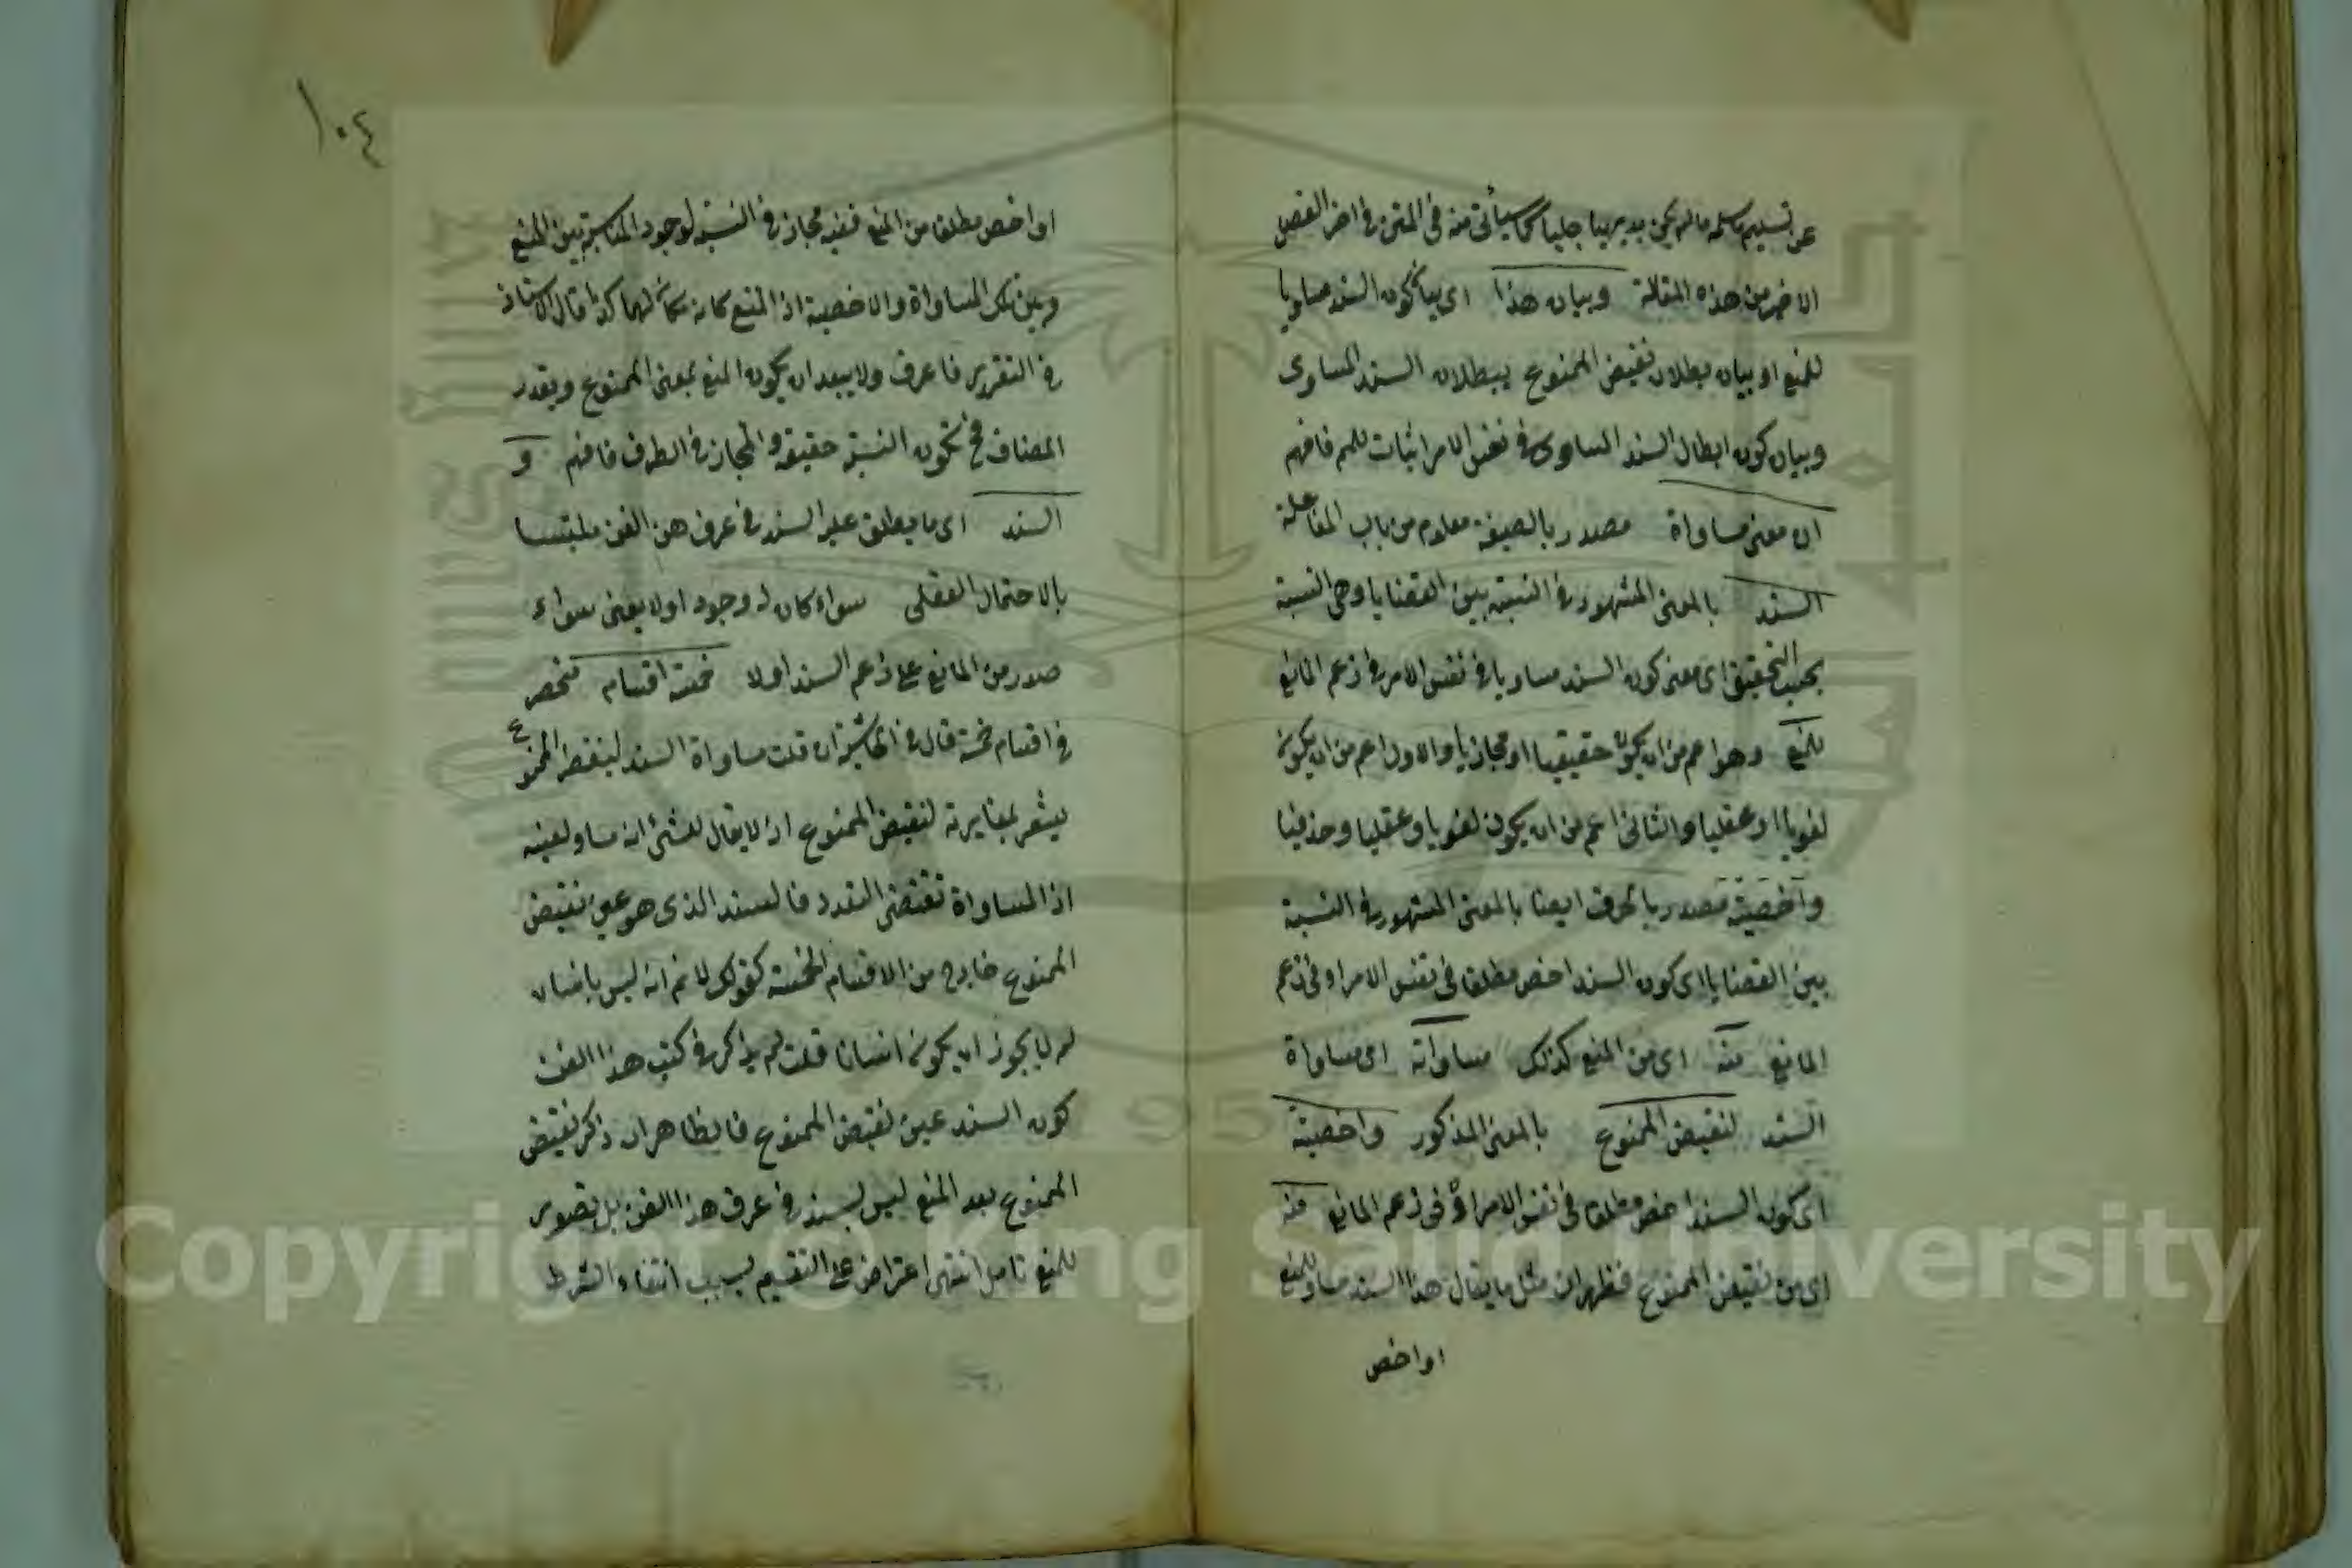 عن تسليم مسلمه ما لم يكن بديهيا جليا كما سيأتى منه فى المتن فى اخر الفصل
الاخر من هذه المقالة وبيان هذا اى بيان كون السند مساويا
للمنع او بيان بطلان نقيض الممنوع ببطلان السند المساوى
وبيان كون ابطال السند المساوى فى نفس الامر اثبات للمم فافهم
ان معنى مساواة مصدر بالصيغة معلوم من باب المفاعلة
السند بالمعنى المشهور فى النسبة بين القضايا وهى النسبة
بحسب التحقيق اى معنى كون السند مساويا فى نفس الامر فى زعم المانع
للمنع وهو اعم من ان يكون حقيقيا او مجازيا والاول اعم من ان يكون
لغويا او عقليا والثانى اعم من ان يكون لغويا وعقليا وحذفيا
واخصية مصدر بالحرف ايضا بالمعنى المشهور فى النسبة
بين القضايا اى كون السند اخص مطلقا فى نفس الامر او فى زعم
المانع منه اى من المنع كذلك مساواته اى مساواة
السند لنقيض الممنوع بالمعنى المذكور واخصيته
اى كون السند اخص مطلقا فى نفس الامر او فى زعم المانع منه
اى من نقيض الممنوع فظهر ان مثل ما يقال هذا السند مساو للمنع
او اخص
١٠٤
او اخص مطلقا من المنع ففيه مجاز فى النسبة لوجود المناسبة بين المنع
وبين تلك المساواة والاخصية اذ المنع كانه مكان لهما كذا قال الاستاذ
فى التقرير فاعرف ولا يبعد ان يكون المنع بمعنى الممنوع ويقدر
المضاف فح تكون النسبة حقيقة والمجاز فى الطرف فافهم و
السند اى ما يطلق عليه السند فى عرف هذا الفن ملتبسا
بالاحتمال العقلى سواء كان له وجود اولا يعنى سواء
صدر من المانع على زعم السند اولا خمسة اقسام منحصر
فى اقسام خمسة قال فى الحاشية ان قلت مساواة السند لنقيض الممنوع
يشعر بمغايرته لنقيض الممنوع اذ لا يقال لشئ انه مساو لعينه
اذ المساواة تقتضى التعدد فالسند الذى هو عين نقيض
الممنوع خارج من الاقسام الخمسة كقولك لا نم انه ليس بانسان
لم لا يجوز ان يكون انسانا قلت لم يذكر فى كتب هذا الفن
كون السند عين نقيض الممنوع فالظاهر ان ذكر نقيض
الممنوع بعد المنع ليس بسند فى عرف هذا الفن بل تصوير
للمنع تامل انتهى اعتراض على التقسيم بسبب انتفاء الشرط
Copyright © King Saud University